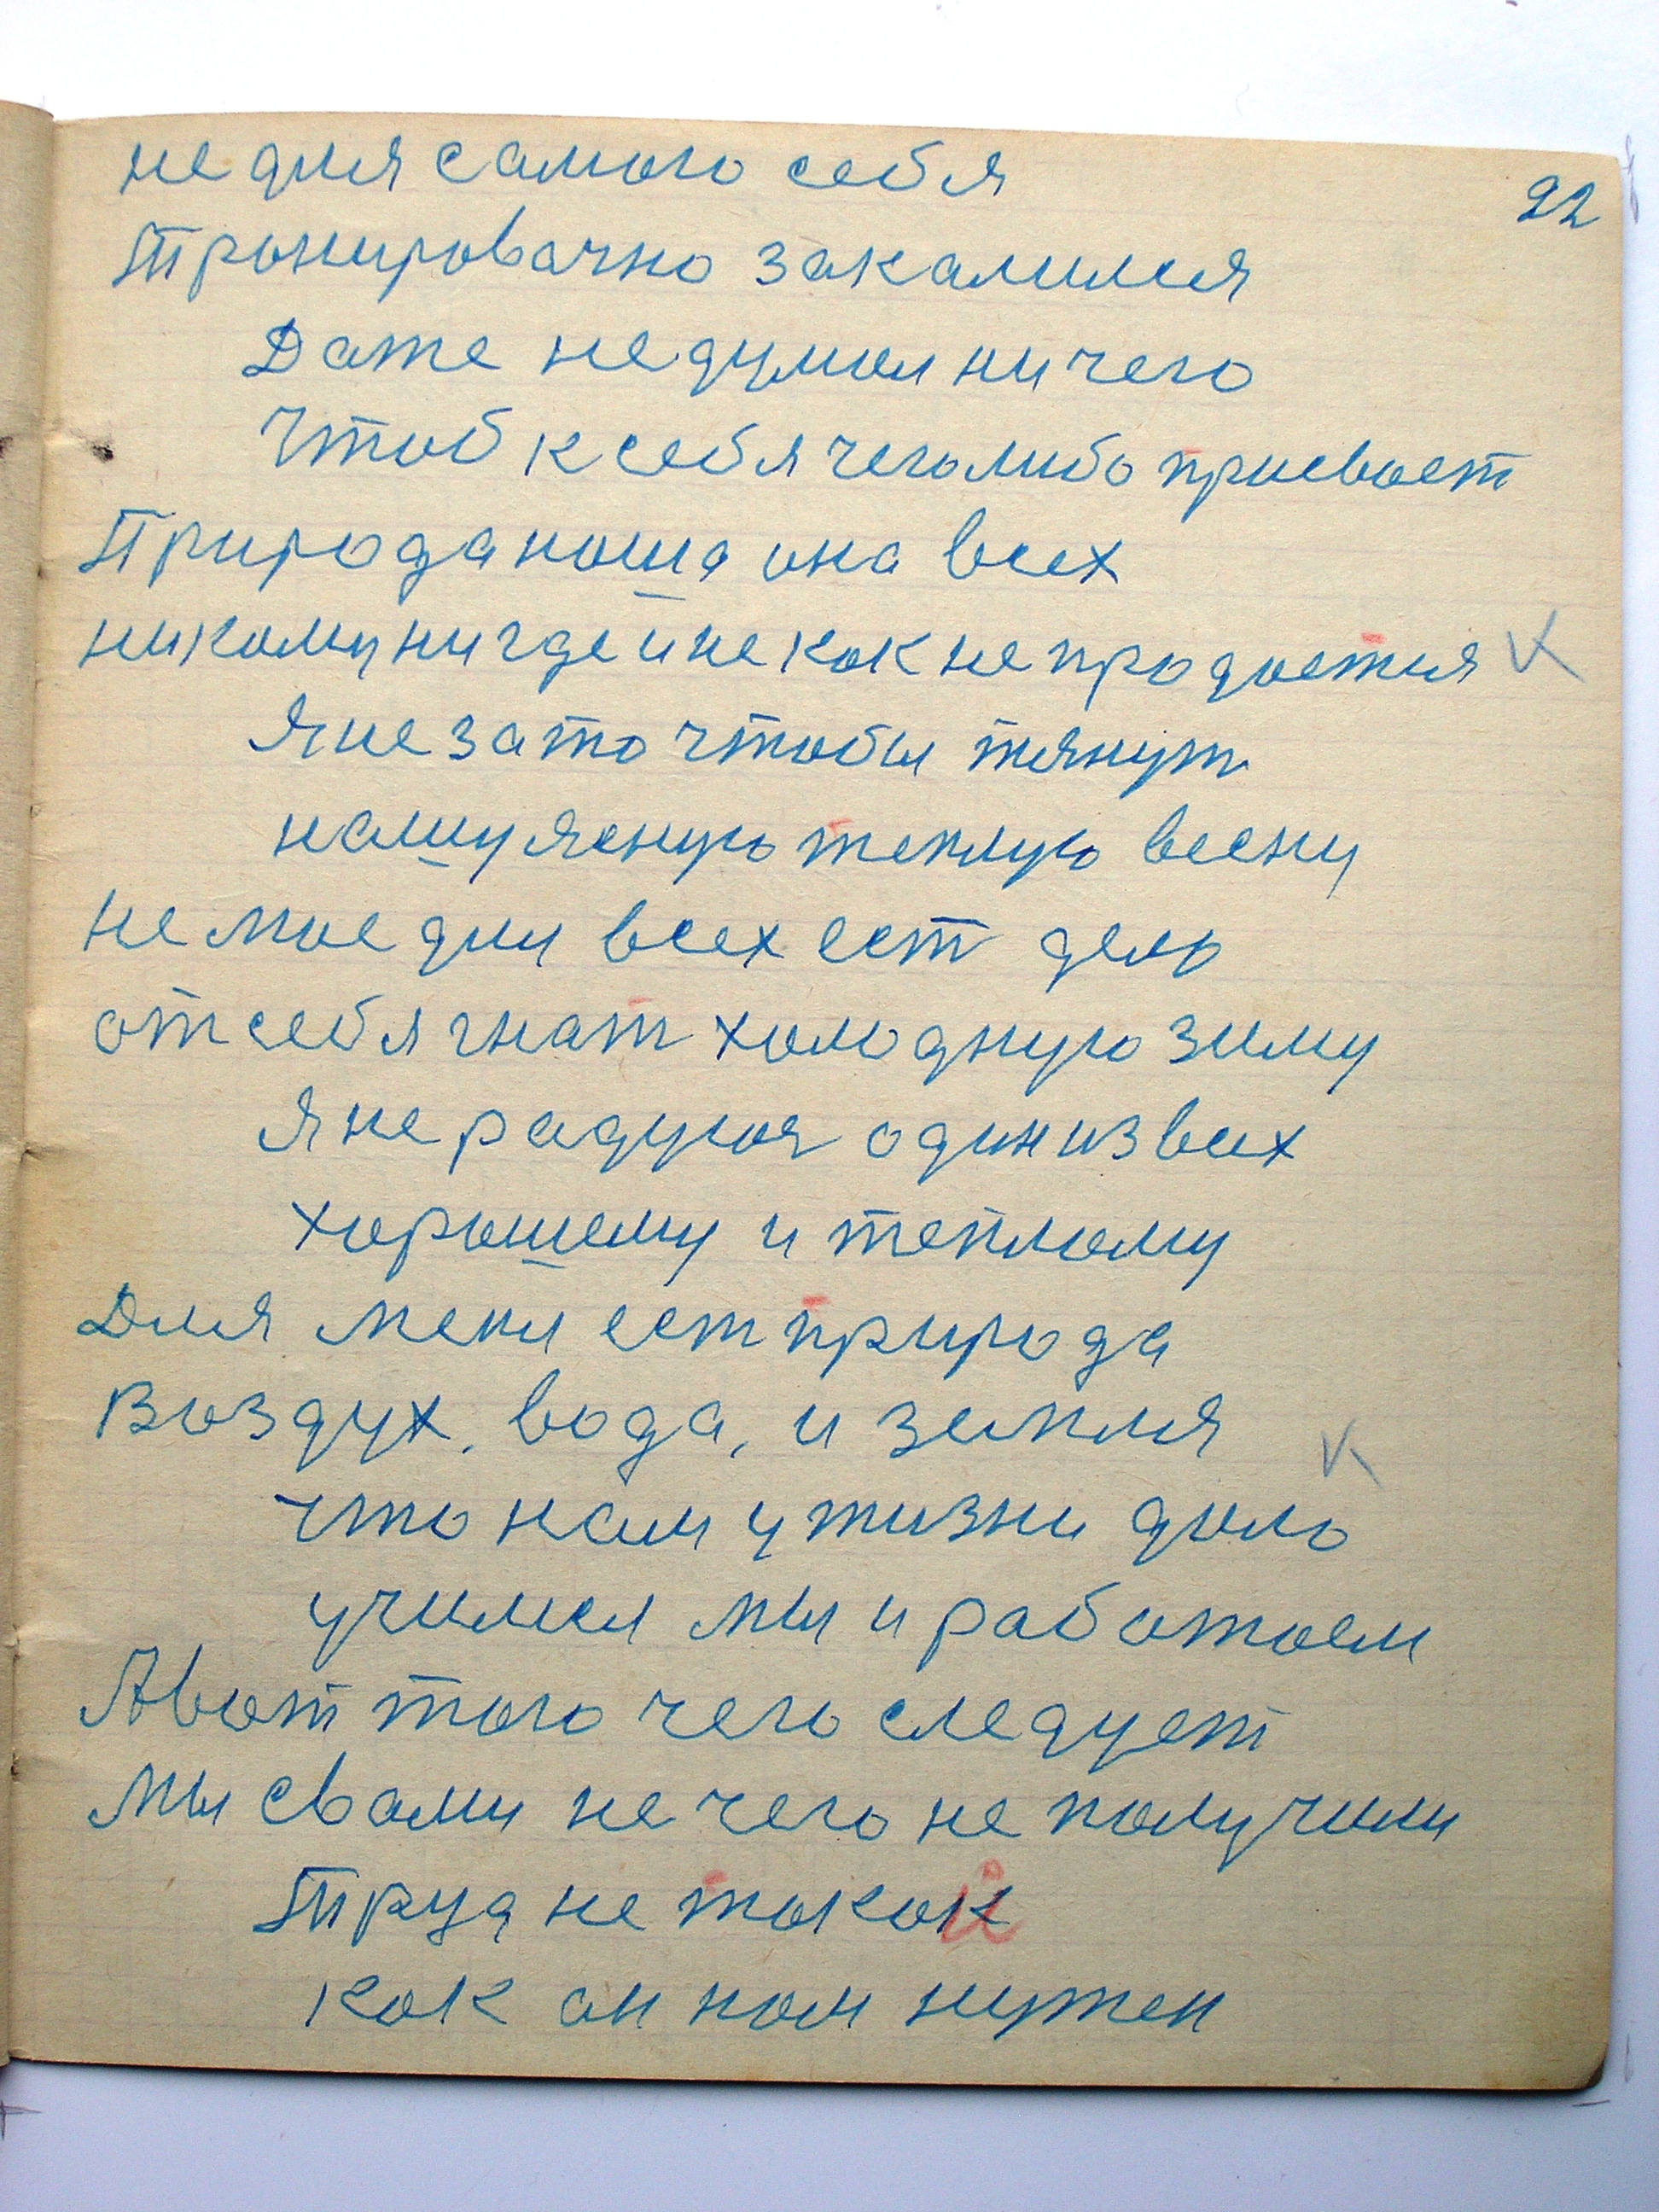 22
не для самого себя
Тронировачно закалился
Даже не думал ничего
Чтоб к себя чеголибо присвоет
Природа наша она всех
никому ни где и не как не продается
Я не зато чтобы тянут
нашу ясную теплую весну
не мое для всех ест дело
от себя гнат холодную зиму
Я не радуюя один из всех
хорошему и теплому
Для меня ест природа
Воздух, вода, и земля
что нам у жизни дало
училися мы и работаем
А вот того чего следует
мы свами не чего не получили
Труд не такой
как он нам нужен